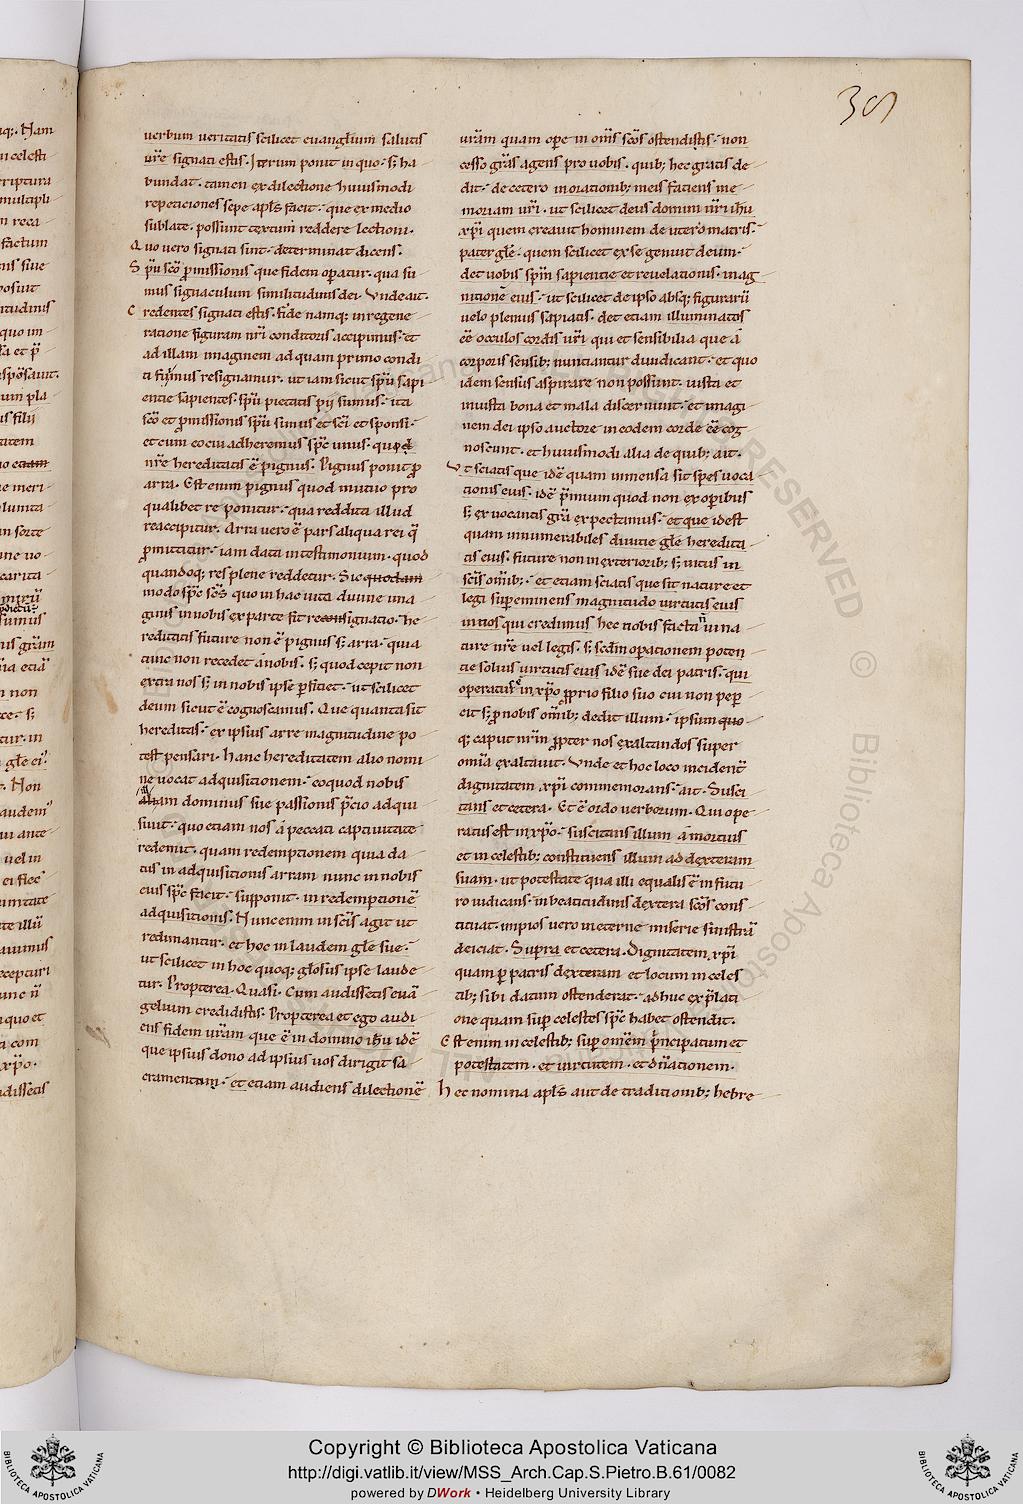 39
verbum veritatis scilicet evangłium salutis
vr̃e signati estis. Iterum ponit in quo. s; ha
bundat. tamen ex dilectione huiusmodi
repeticiones sepe apl̃s facit. que ex medio
sublate. possunt certum reddere lectiom.
Quo vero signati sunt. determinat dicens.
Sp̃u sc̃o p̃missionis que fidem oꝑatur. qua su
mus signaculum similitudinis dei. Vnde ait.
Credentes signati estis. fide namq; in regene
ratione figuram nr̃i conditoris accipimus. et
ad illam imaginem ad quam primo condi
ti fuimus resignamur. ut iam sicut sp̃u sapi
entie sapientes. sp̃u pietatis pij sumus. ita
sc̃o et p̃missionis sp̃u simus et sc̃i et sponsi.
et cum eo cui adheremus sp̃c unus. quod
nr̃e hereditatis ẽ pignus. Pignus ponit ꝓ
arra. Est enim pignus quod mutuo pro
qualibet re ponitur. qua reddita illud
reaccipitur. Arra vero ẽ pars aliqua rei q̃
ꝓmittitur. iam data in testimonium. quod
quandoq; res plene reddetur. Sic quodam
modo sp̃c sc̃s quo in hac vita divine ima
ginis in nobis ex parte fit reconsignatio. he
reditatis future non ẽ pignus s; arra. quia
tunc non recedet a nobis. s; quod cepit non
extra nos s; in nobis ipse ꝑficiet. ut scilicet
deum sicut ẽ cognoscamus. Que quanta sit
hereditas. ex ipsius arre magnitudine po
test pensari. hanc hereditatem alio nomi
ne vocat adquisitionem. eo quod nobis
illam dominus sue passionis p̃cio adqui
sivit. quo etiam nos a peccati captivitate
redemit. quam redemptionem quia da
tis in adquisitionis arram nunc in nobis
eius sp̃c facit. supponit. in redemptionẽ
adquisitionis. Nunc enim in sc̃is agit ut
redimantur. et hoc in laudem gl̃e sue.
ut scilicet in hoc quoq; gl̃osus ipse laude
tur. Propterea. Quasi. Cum audissetis evã
gelium credidistis. Propterea et ego audi
ens fidem vr̃am que ẽ in domino ih̃u idẽ
que ipsius dono ad ipsius vos dirigit sa
cramentum. et etiam audiens dilectionẽ
vr̃am quam oꝑe in om̃s sc̃os ostendistis. non
cesso gr̃as agens pro vobis. quib; hec gratis de
dit. de cetero in orationib; meis faciens me
moriam vr̃i. ut scilicet deus domini nr̃i ih̃u
xp̃i quem creavit hominem de utero matris.
pater gl̃e. quem scilicet ex se genuit deum.
det vobis sp̃m sapientie et revelationis. in ag
nitionẽ eius. ut scilicet de ipso absq; figurarũ
velo plenius sapiatis. det etiam illuminatos
ẽe occulos cordis vr̃i qui et sensibilia que a
corporis sensib; nuntiantur diiudicant. et quo
idem sensus aspirare non possunt. iusta et
iniusta bona et mala discernunt. et imagi
nem dei ipso auctore in eodem corde ẽe cog
noscunt. et huiusmodi alia de quib; ait.
Vt sciatis que idẽ quam inmensa sit spes voca
tionis eius. idẽ p̃mium quod non ex oꝑibus
s; ex vocantis gr̃a expectamus. et que idest
quam innumerabiles divitie gl̃e heredita
tis eius. future non in exteriorib; s; intus in
sc̃is om̃ib;. et etiam sciatis que sit nature et
legi suꝑeminens magnitudo virtutis eius
in nos qui credimus hec nobis facta n̄ vi na
ture nr̃e vel legis. s; scd̃m oꝑationem poten
tie solius virtutis eius idẽ sue dei patris. qui
operatus ẽ in xp̃o ꝓprio filio suo cui non peꝑ
cit s; ꝓ nobis om̃ib; dedit illum. ipsum quo
q; caput nr̃m ꝓpter nos exaltandos super
om̃ia exaltavit. Vnde et hoc loco incidenter
dignitatem xp̃i commemorans. ait. Susci
tans et cetera. Et ẽ ordo verborum. Qui ope
ratus est in xp̃o. suscitans illum a mortuis
et in celestib; constituens illum ad dexteram
suam. ut potestate qua illi equalis ẽ in futu
ro iudicans. in beatitudinis dextera sc̃os cons
tituat. impios vero in eterne miserie sinistrã
deiciat. Supra et cetera. Dignitatem xp̃i
quam ꝑ patris dexteram et locum in celes
tib; sibi datum ostenderat. adhuc ex p̃lati
one quam suꝑ celestes sp̃c habet ostendit.
Est enim in celestib; suꝑ om̃em p̃ncipatum et
potestatem. et virtutem. et dñationem.
hec nomina apl̃s aut de traditionib; hebre
Copyright © Biblioteca Apostolica Vaticana
http://digi.vatlib.it/view/MSS_Arch.Cap.S.Pietro.B.61/0082
powered by DWork • Heidelberg University Library